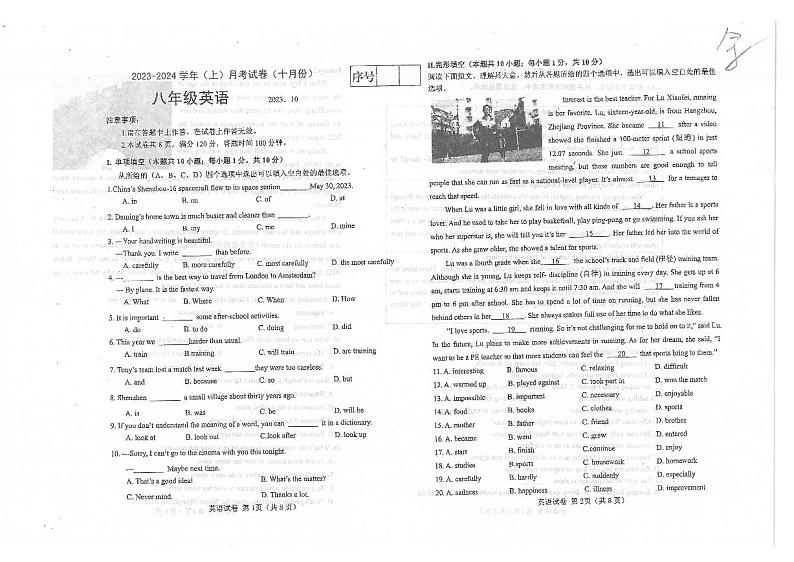 2023-2024 学年（上）月考试卷（十月份）
序号
八年级英语 2023. 10
注意事项：
1.请在答题卡上作答，在试卷上作答无效。
2.本试卷共 8 页，满分 120 分，答题时间 100 分钟。
I. 单项填空（本题共 10 小题；每小题 1 分，共 10 分）
从所给的（A、B、C、D）四个选项中选出可以填入空白处的最佳选项。
1.China's Shenzhou-16 spacecraft flew to its space station_______May 30, 2023.
A. in B. on C. of D. at
2. Daming's home town is much busier and cleaner than _______.
A. I B. my C. me D. mine
3. —Your handwriting is beautiful.
—Thank you. I write _______ than before.
A. carefully B. more carefully C. most carefully D. the most carefully
4. ---_______ is the best way to travel from London to Amsterdam?
--- By plane. It is the fastest way.
A. What B. Where C. When D. How
5. It is important _______ some after-school activities.
A. do B. to do C. doing D. did
6. This year we _______harder than usual.
A. train B.training C. will train D. are training
7. Tony's team lost a match last week _______they were too careless.
A. and B. because C. so D. but
8. Shenzhen _______ a small village about thirty years ago.
A. is B. was C. be D. will be
9. If you don't understand the meaning of a word, you can _______ it in a dictionary.
A. look at B. look out C.look after D. look up
10. ---Sorry, I can't go to the cinema with you this tonight.
---_______ Maybe next time.
A. That's a good idea! B. What's the matter?
C. Never mind. D. Thanks a lot.
英语试卷 第 1页（共 8 页）
II.完形填空（本题共 10 小题；每小题 1 分，共 10 分）
阅读下面短文，理解其大意，然后从各题所给的四个选项中，选出可以填入空白处的最佳
选项。
Interest is the best teacher. For Lu Xiaofei, running
is her favorite. Lu, sixteen-year-old, is from Hangzhou,
Zhejiang Province. She became 11 after a video
showed she finished a 100-meter sprint (短跑) in just
12.07 seconds. She just 12 a school sports
meeting, but those numbers are good enough to tell
people that she can run as fast as a national-level player. It's almost 13 for a teenager to
reach that speed.
When Lu was a little girl, she fell in love with all kinds of 14 . Her father is a sports
lover. And he used to take her to play basketball, play ping-pong or go swimming. If you ask her
who her superstar is, she will tell you it's her 15 . Her father led her into the world of
sports. As she grew older, she showed a talent for sports.
Lu was a fourth grade when she 16 the school's track and field (田径) training team.
Although she is young, Lu keeps self- discipline (自律) in training every day. She gets up at 6
am, starts training at 6:30 am and keeps it until 7:30 am. And she will 17 training from 4
pm to 6 pm after school. She has to spend a lot of time on running, but she has never fallen
behind others in her 18 . She always makes full use of her time to do what she likes.
"I love sports. 19 running. So it's not challenging for me to hold on to it," said Lu.
In the future, Lu plans to make more achievements in running. As for her dream, she said, "I
want to be a PE teacher so that more students can feel the 20 that sports bring to them."
11. A. interesting B. famous C. relaxing D. difficult
12. A. warmed up B. played against C. took part in D. won the match
13. A. impossible B. important C. necessary D. enjoyable
14. A. food B. books C. clothes D. sports
15. A. mother B. father C. friend D. brother
16. A. became B. went C. grew D. entered
17. A. start B. finish C.continue D. enjoy
18. A. studies B.sports C. housework D. homework
19. A. carefully B. hardly C. suddenly D. especially
20. A. sadness B. happiness C. illness D. improvement
英语试卷 第 2页（共 8 页）